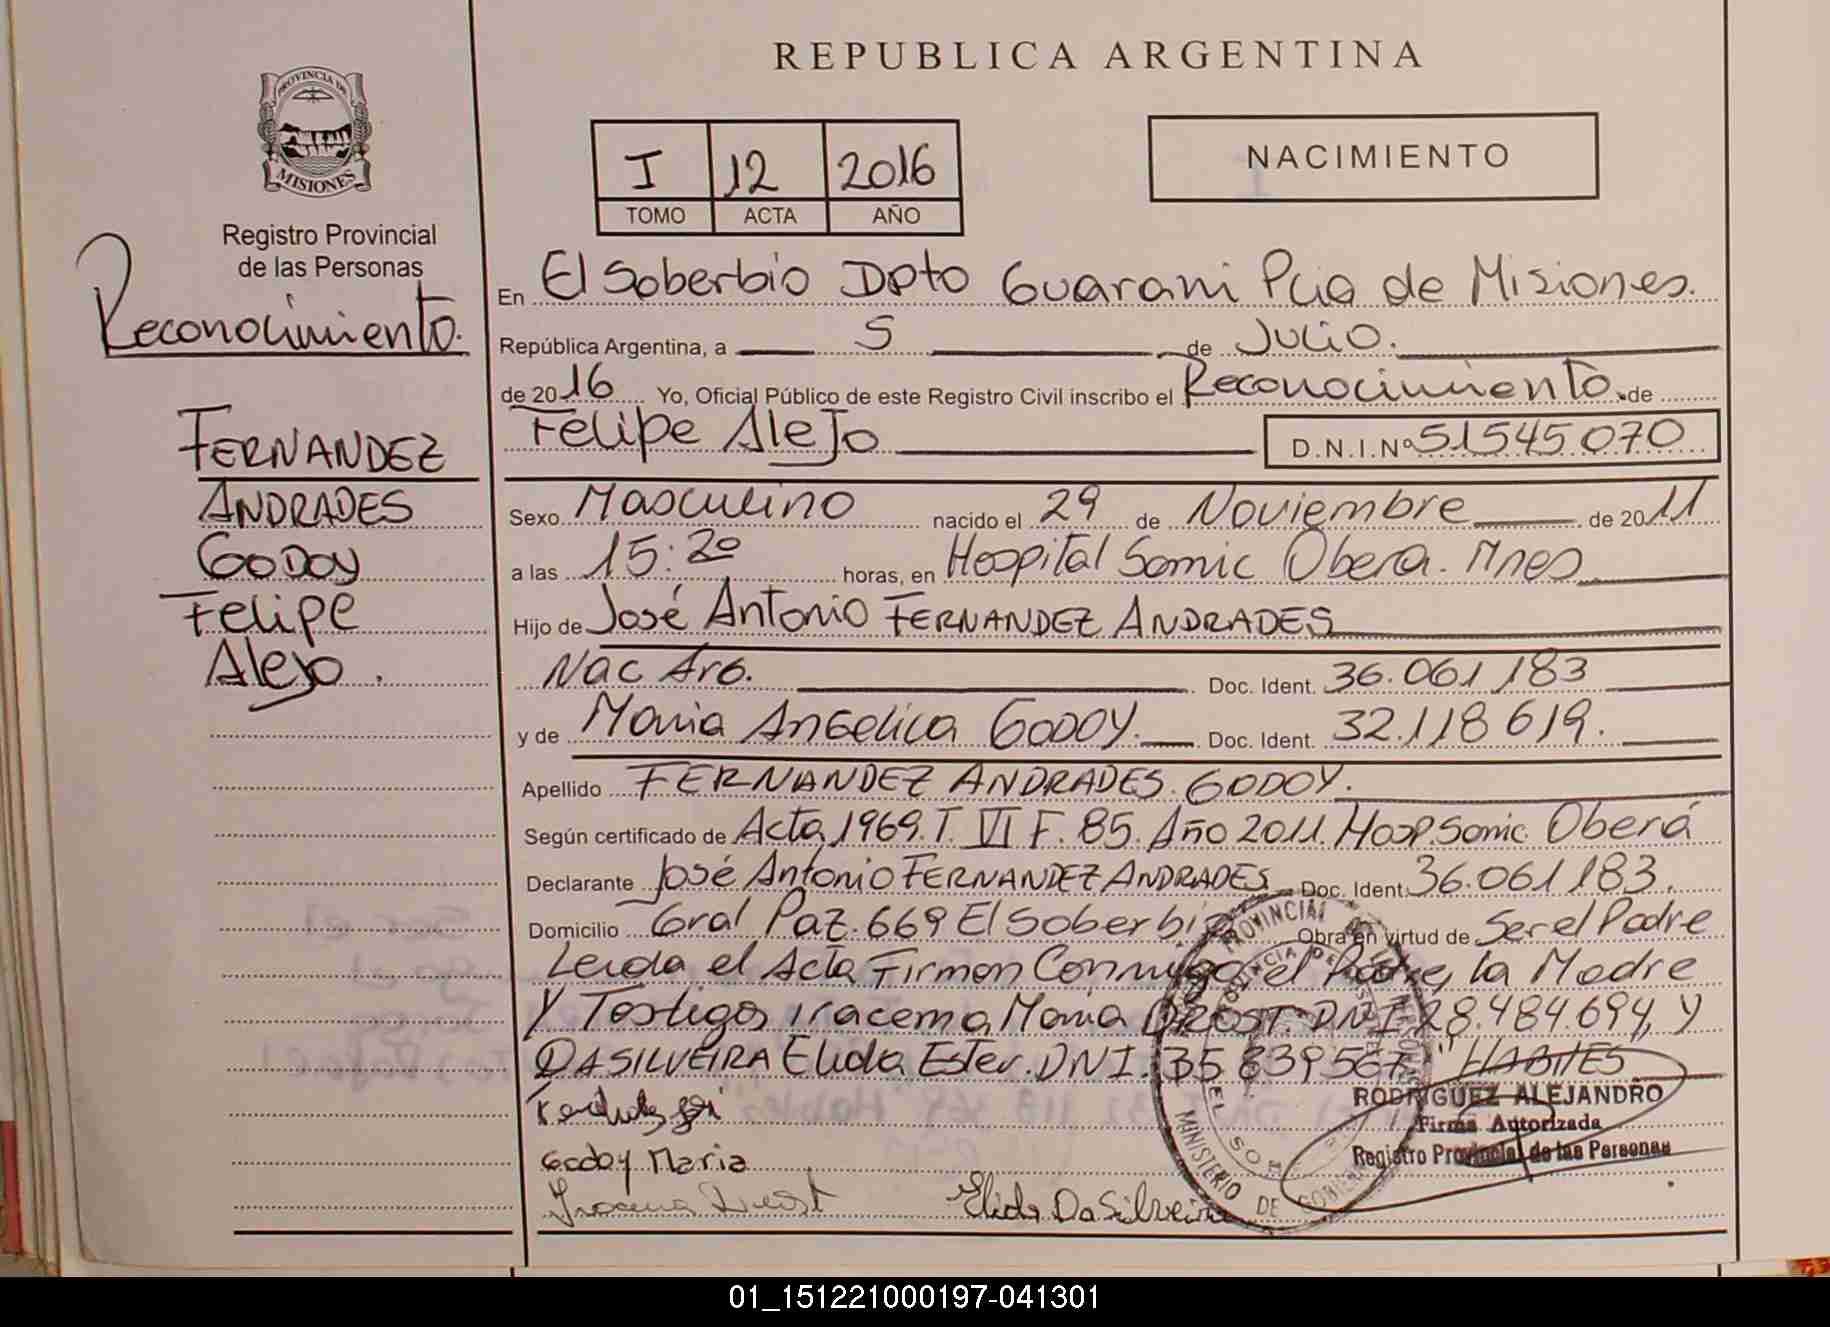 REPUBLICA ARGENTINA
PROVINCIA DE
MISIONES
Registro Provincial
de las Personas
Reconocimiento.
FERNANDEZ
ANDRADES
GODOY
Felipe
Alejo.
I 12 2016
TOMO ACTA AÑO
NACIMIENTO
En El Soberbio Dpto Guarani Pcia de Misiones.
República Argentina, a 5 de Julio.
de 2016 Yo, Oficial Público de este Registro Civil inscribo el Reconocimiento de
Felipe Alejo D.N.I.Nº 51545070
Sexo Masculino nacido el 29 de Noviembre de 2011
a las 15:20 horas, en Hospital Samic Obera. Mnes
Hijo de José Antonio FERNANDEZ ANDRADES
Nac Arg. Doc. Ident. 36.061.183
y de Maria Angelica GODOY. Doc. Ident. 32.118.619.
Apellido FERNANDEZ ANDRADES GODOY.
Según certificado de Acta 1969. T. VI F. 85. Año 2011. Hosp. Samic. Oberá
Declarante José Antonio FERNANDEZ ANDRADES Doc. Ident. 36.061.183.
Domicilio Gral Paz. 669 El Soberbio Obra en virtud de Ser el Padre
Leida el Acta Firman Conmigo el Padre, la Madre
Y Testigos Iracema Maria DROST. DNI 28.484.694, y
DASILVEIRA Elida Ester. DNI. 35 839 567 "HABILES
RODRIGUEZ ALEJANDRO
Firma Autorizada
Registro Provincial de las Personas
Godoy Maria
Iracema Drost Elida DaSilveira
PROVINCIAL
MINISTERIO DE
01_151221000197-041301